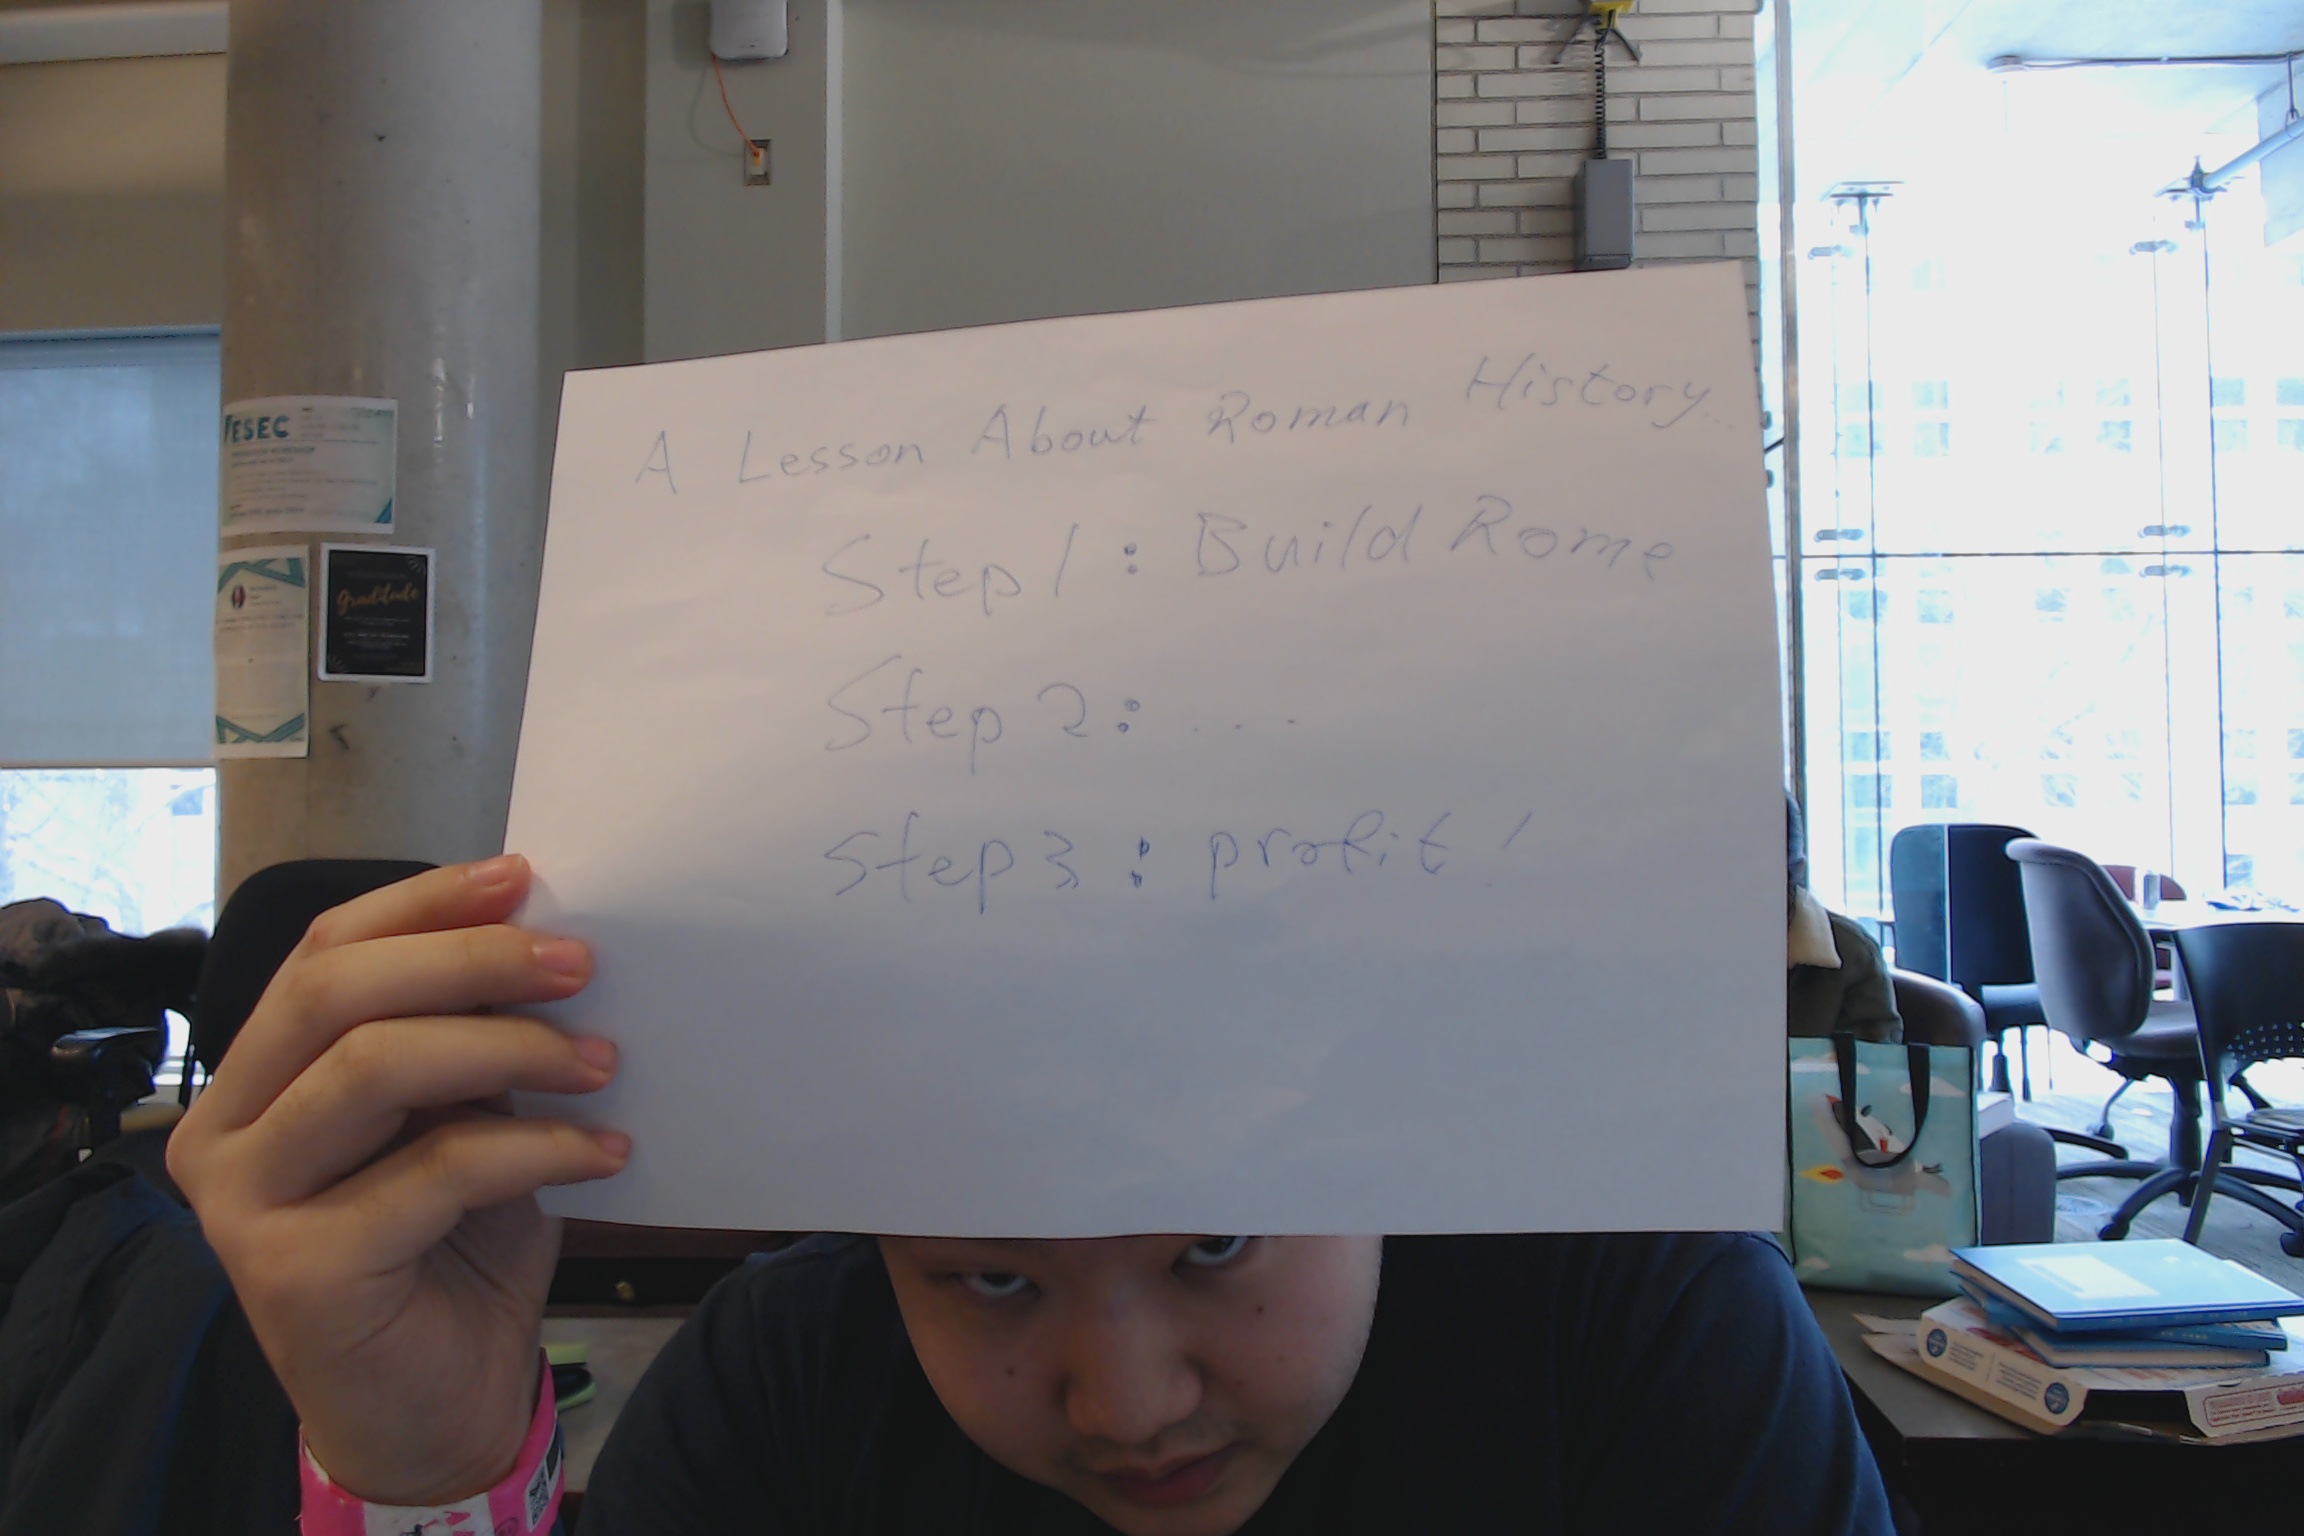 A Lesson About Roman History...
Step 1: Build Rome
Step 2: ...
Step 3: profit!
ESEC
Graditude